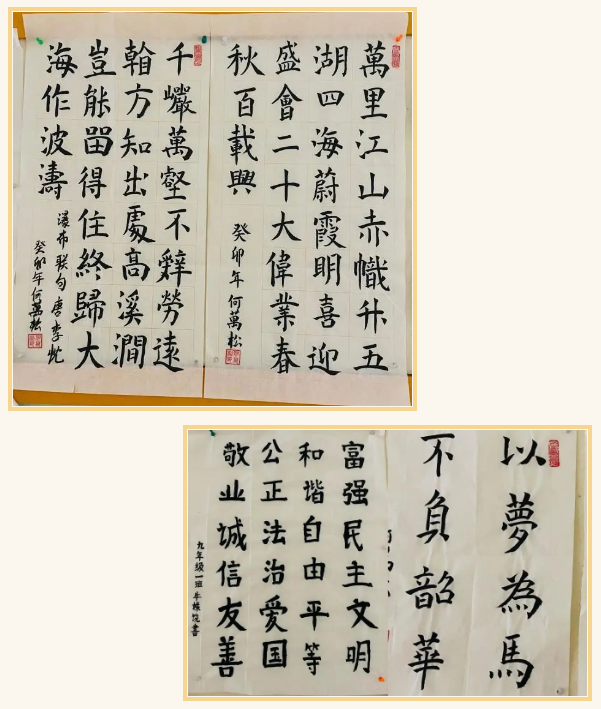 萬里江山赤幟升五
湖四海蔚霞明喜迎
盛會二十大偉業春
秋百載興
癸卯年何萬松
千巖萬壑不辭勞遠
看方知出處高溪澗
豈能留得住終歸大
海作波濤
瀑布联句 唐李忱
癸卯年何萬松
以夢為馬
不負韶華
富强民主文明
和谐自由平等
公正法治爱国
敬业诚信友善
九年级一班